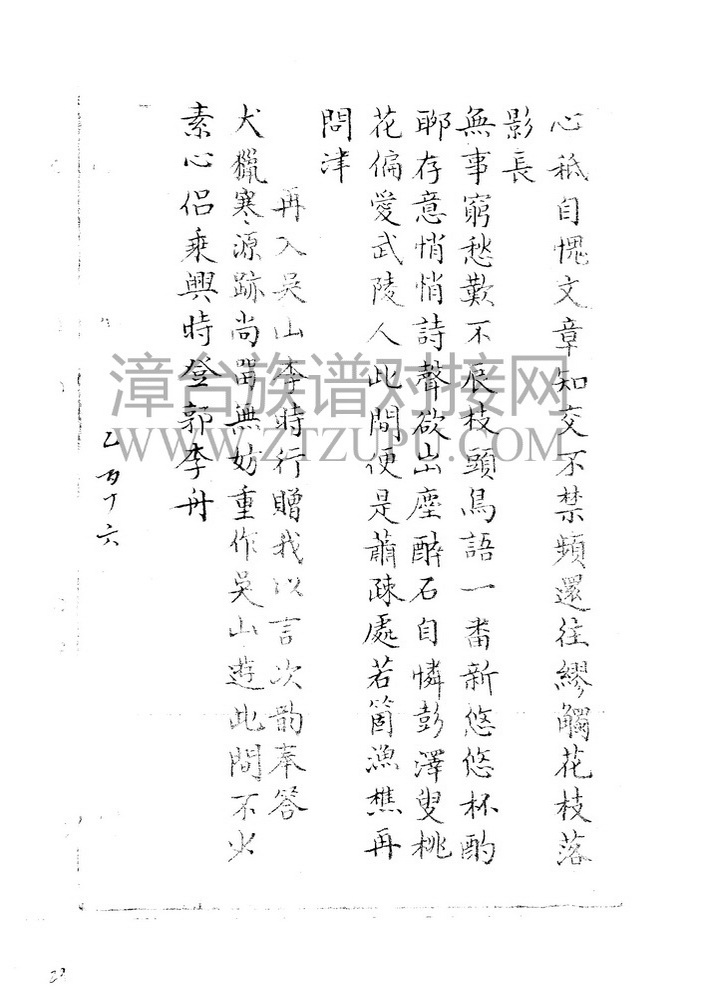 心秪自愧文章知交不禁頻還往繆觸花枝落
影長
無事窮愁歎不辰枝頭鳥語一番新悠悠杯酌
聊存意悄悄詩聲欲出塵醉石自憐彭澤叟桃
花偏愛武陵人此間便是蕭疎處若箇漁樵再
問津
再入吳山李時行贈我以言次韵奉答
犬獵寒源跡尚留無妨重作吳山遊此間不火
素心侣乘興時登郭李舟
六
漳台族谱对接网
WWW.ZTZUPU.COM